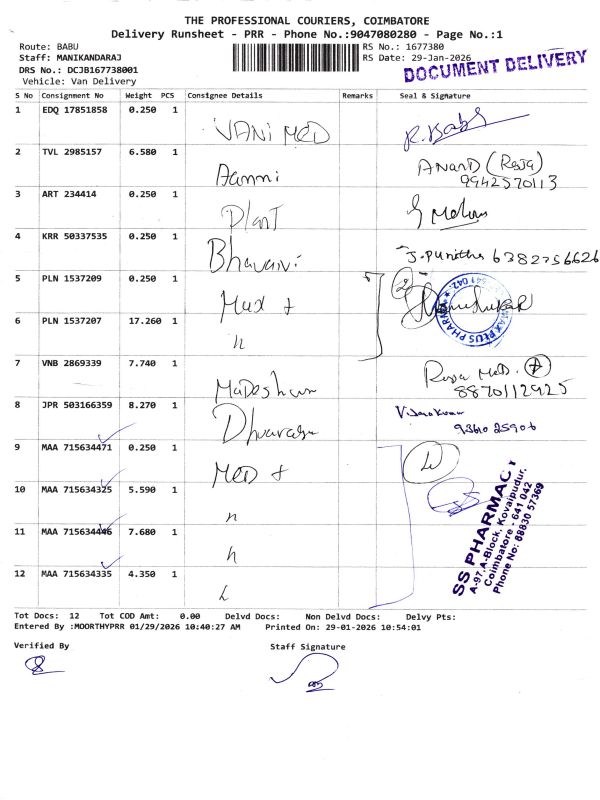 THE PROFESSIONAL COURIERS, COIMBATORE
Delivery Runsheet - PRR - Phone No.:9047080280 - Page No.:1
Route: BABU
Staff: MANIKANDARAJ
DRS No.: DCJB167738001
Vehicle: Van Delivery
RS No.: 1677380
RS Date: 29-Jan-2026
DOCUMENT DELIVERY
S No Consignment No Weight PCS Consignee Details Remarks Seal & Signature
1 EDQ 17851858 0.250 1 VANI MED R. Babu
2 TVL 2985157 6.580 1 ANAND (Raja)
9942570113
3 ART 234414 0.250 1 Plant
4 KRR 50337535 0.250 1 Bhavani J. Punitha 6382756626
5 PLN 1537209 0.250 1 Max + 2
6 PLN 1537207 17.260 1 "
7 VNB 2869339 7.740 1 Madeshwar
8870112925
8 JPR 503166359 8.270 1 Vijayakumar
9 MAA 715634471 0.250 1 Med +
10 MAA 715634325 5.590 1 "
11 MAA 715634446 7.680 1 "
12 MAA 715634335 4.350 1
SS PHARMACY
A-97, A-Block, Kovaipudur,
Coimbatore - 641 042
Phone No: 88830 57369
Tot Docs: 12 Tot COD Amt: 0.00 Delvd Docs: Non Delvd Docs: Delvy Pts:
Entered By :MOORTHYPRR 01/29/2026 10:40:27 AM Printed On: 29-01-2026 10:54:01
Verified By Staff Signature